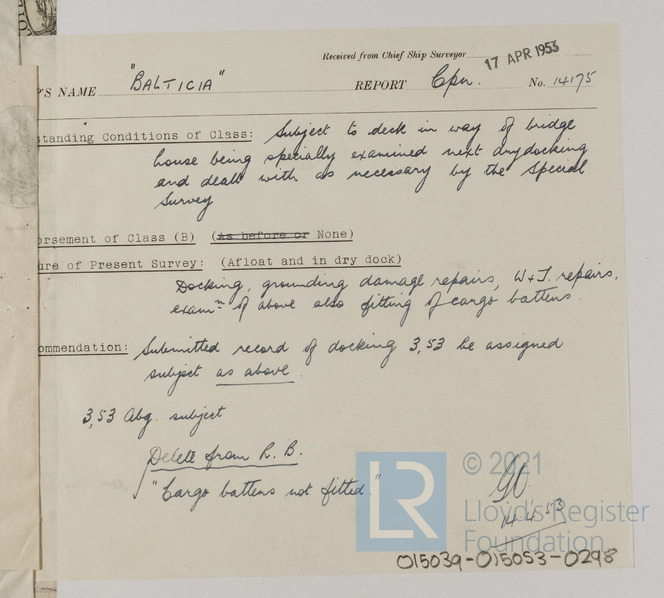 Received from Chief Ship Surveyor 17 APR 1953
'S NAME "BALTICIA" REPORT Cpn. No. 14175
standing Conditions of Class: Subject to deck in way of bridge
house being specially examined next drydocking
and dealt with as necessary by the Special
Survey
orsement of Class (B) (As before or None)
ure of Present Survey: (Afloat and in dry dock)
Docking, grounding damage repairs, W+T. repairs.
examn of above also fitting of cargo battens.
ommendation: Submitted record of docking 3,53 be assigned
subject as above.
3,53 Abg. subject
Delete from R. B.
"Cargo battens not fitted."
14.4.53
LR © 2021
Lloyd's Register
Foundation
015039-015053-0298